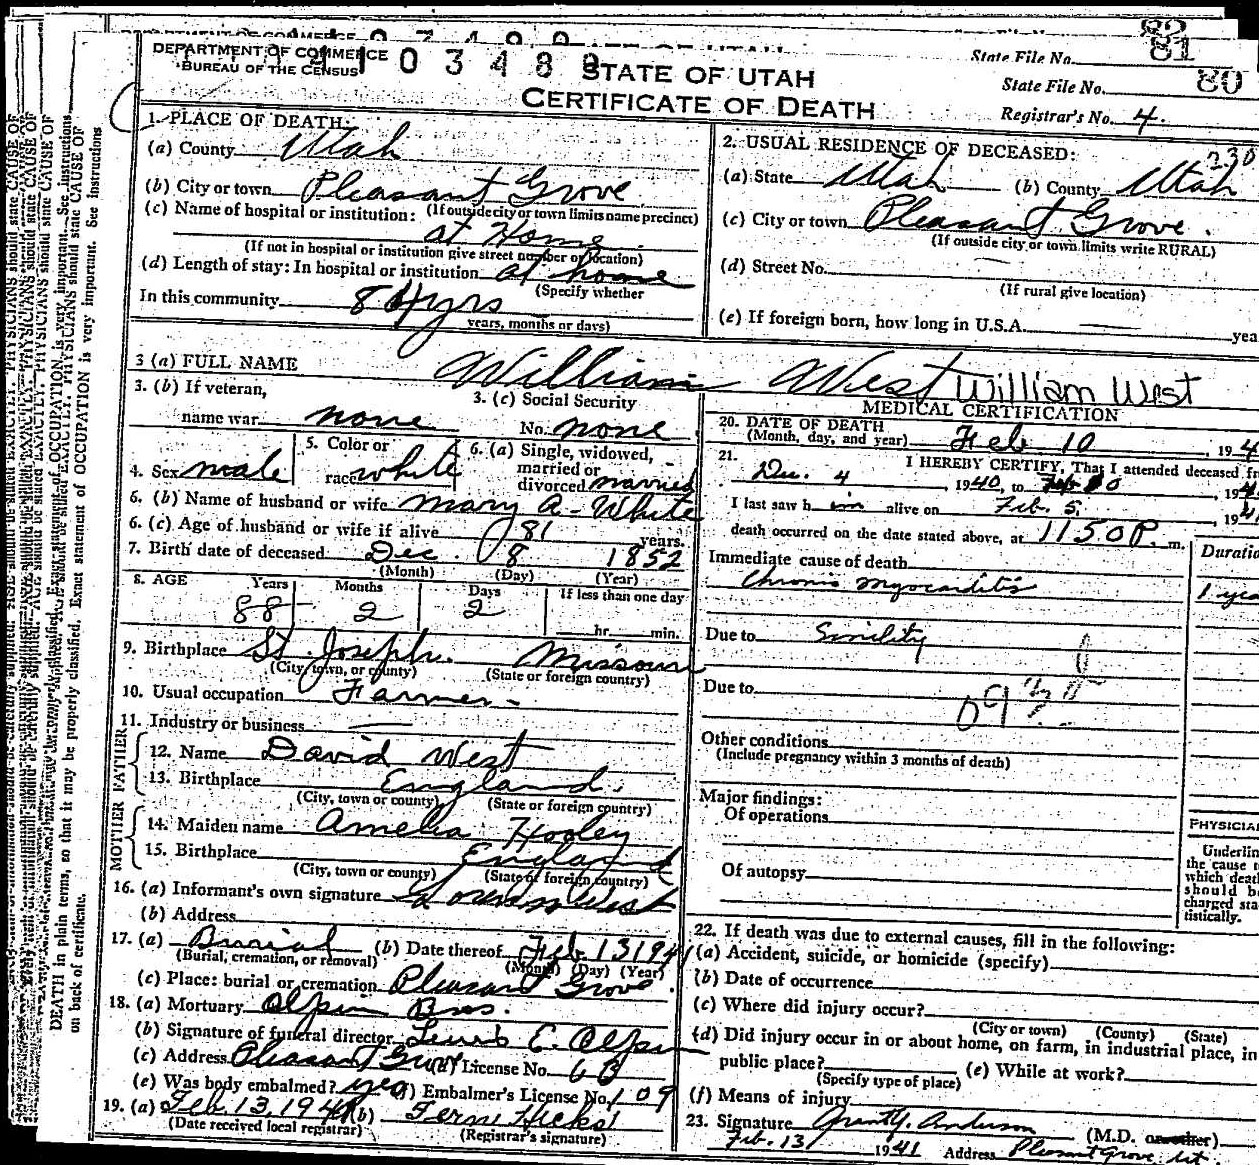 82
State File No. 81
DEPARTMENT OF COMMERCE
BUREAU OF THE CENSUS
103489
STATE OF UTAH
CERTIFICATE OF DEATH
State File No. 80
Registrar's No. 4.
1. PLACE OF DEATH:
(a) County Utah
(b) City or town Pleasant Grove
(c) Name of hospital or institution: (If outside city or town limits name precinct)
at Home
(If not in hospital or institution give street number or location)
(d) Length of stay: In hospital or institution at home
(Specify whether
In this community 84 yrs
years, months or days)
2. USUAL RESIDENCE OF DECEASED:
230
(a) State Utah (b) County Utah
(c) City or town Pleasant Grove.
(If outside city or town limits write RURAL)
(d) Street No.
(If rural give location)
(e) If foreign born, how long in U.S.A. yea
3 (a) FULL NAME William West William West
3. (b) If veteran,
name war none
3. (c) Social Security
No. none
4. Sex male
5. Color or
race white
6. (a) Single, widowed,
married or
divorced married
6. (b) Name of husband or wife Mary A. White
6. (c) Age of husband or wife if alive 81 years.
7. Birth date of deceased Dec. 8 1852
(Month) (Day) (Year)
8. AGE Years Months Days If less than one day
88 2 2 hr. min.
9. Birthplace St. Joseph. Missouri
(City, town, or county) (State or foreign country)
10. Usual occupation Farmer
11. Industry or business
FATHER
12. Name David West
13. Birthplace England
(City, town or county) (State or foreign country)
MOTHER
14. Maiden name Amelia Hooley
15. Birthplace England
(City, town or county) (State or foreign country)
16. (a) Informant's own signature West
(b) Address
17. (a) Burial (b) Date thereof Feb. 13 1941
(Burial, cremation, or removal) (Month) (Day) (Year)
(c) Place: burial or cremation Pleasant Grove.
18. (a) Mortuary Olpin Bros.
(b) Signature of funeral director Lewis E. Olpin
(c) Address Pleasant Grove (d) License No. 63
(e) Was body embalmed? yes (f) Embalmer's License No. 109
19. (a) Feb. 13, 1941 (b) Fern Hicks
(Date received local registrar) (Registrar's signature)
MEDICAL CERTIFICATION
20. DATE OF DEATH
(Month, day, and year) Feb 10, 194
21. I HEREBY CERTIFY, That I attended deceased fr
Dec. 4, 1940, to Feb 10, 194
I last saw him alive on Feb. 5, 194
death occurred on the date stated above, at 1150 P. m.
Immediate cause of death Duratio
Chronic myocarditis 1 yea
Due to Senility
Due to
Other conditions
(Include pregnancy within 3 months of death)
Major findings:
Of operations
Of autopsy
PHYSICIA
Underlin
the cause
which deat
should b
charged sta
tistically.
22. If death was due to external causes, fill in the following:
(a) Accident, suicide, or homicide (specify)
(b) Date of occurrence
(c) Where did injury occur?
(City or town) (County) (State)
(d) Did injury occur in or about home, on farm, in industrial place, in
public place? (e) While at work?
(Specify type of place)
(f) Means of injury
23. Signature Grant Y. Anderson (M.D. or other)
Feb. 13 1941 Address Pleasant Grove Ut.
DEATH in plain terms, so that it may be properly classified. Exact statement of OCCUPATION is very important. See instructions
on back of certificate.